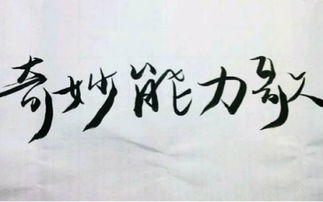 奇妙能力歌